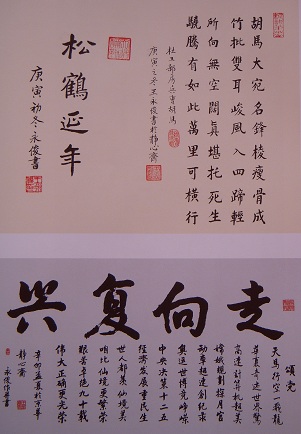 胡馬大宛名鋒棱瘦骨成
竹批雙耳峻風入四蹄輕
所向無空闊真堪托死生
驍騰有如此萬里可橫行
杜工部房兵曹胡馬
庚寅之冬永俊書於靜心齋
松鶴延年
庚寅初冬永俊書
走向复兴
頌党
天馬行空一載龍
華夏奇迹世界驚
高速計算機超美
嫦娥翔探月宮
動車超速創紀錄
奧運世博競崢嶸
中央決策十二五
經濟發展重民生
世人都羨仙境美
咱比仙境更繁榮
艱苦卓絕九十載
偉大正確更光榮
辛卯孟夏於京華
靜心齋
永俊作并書